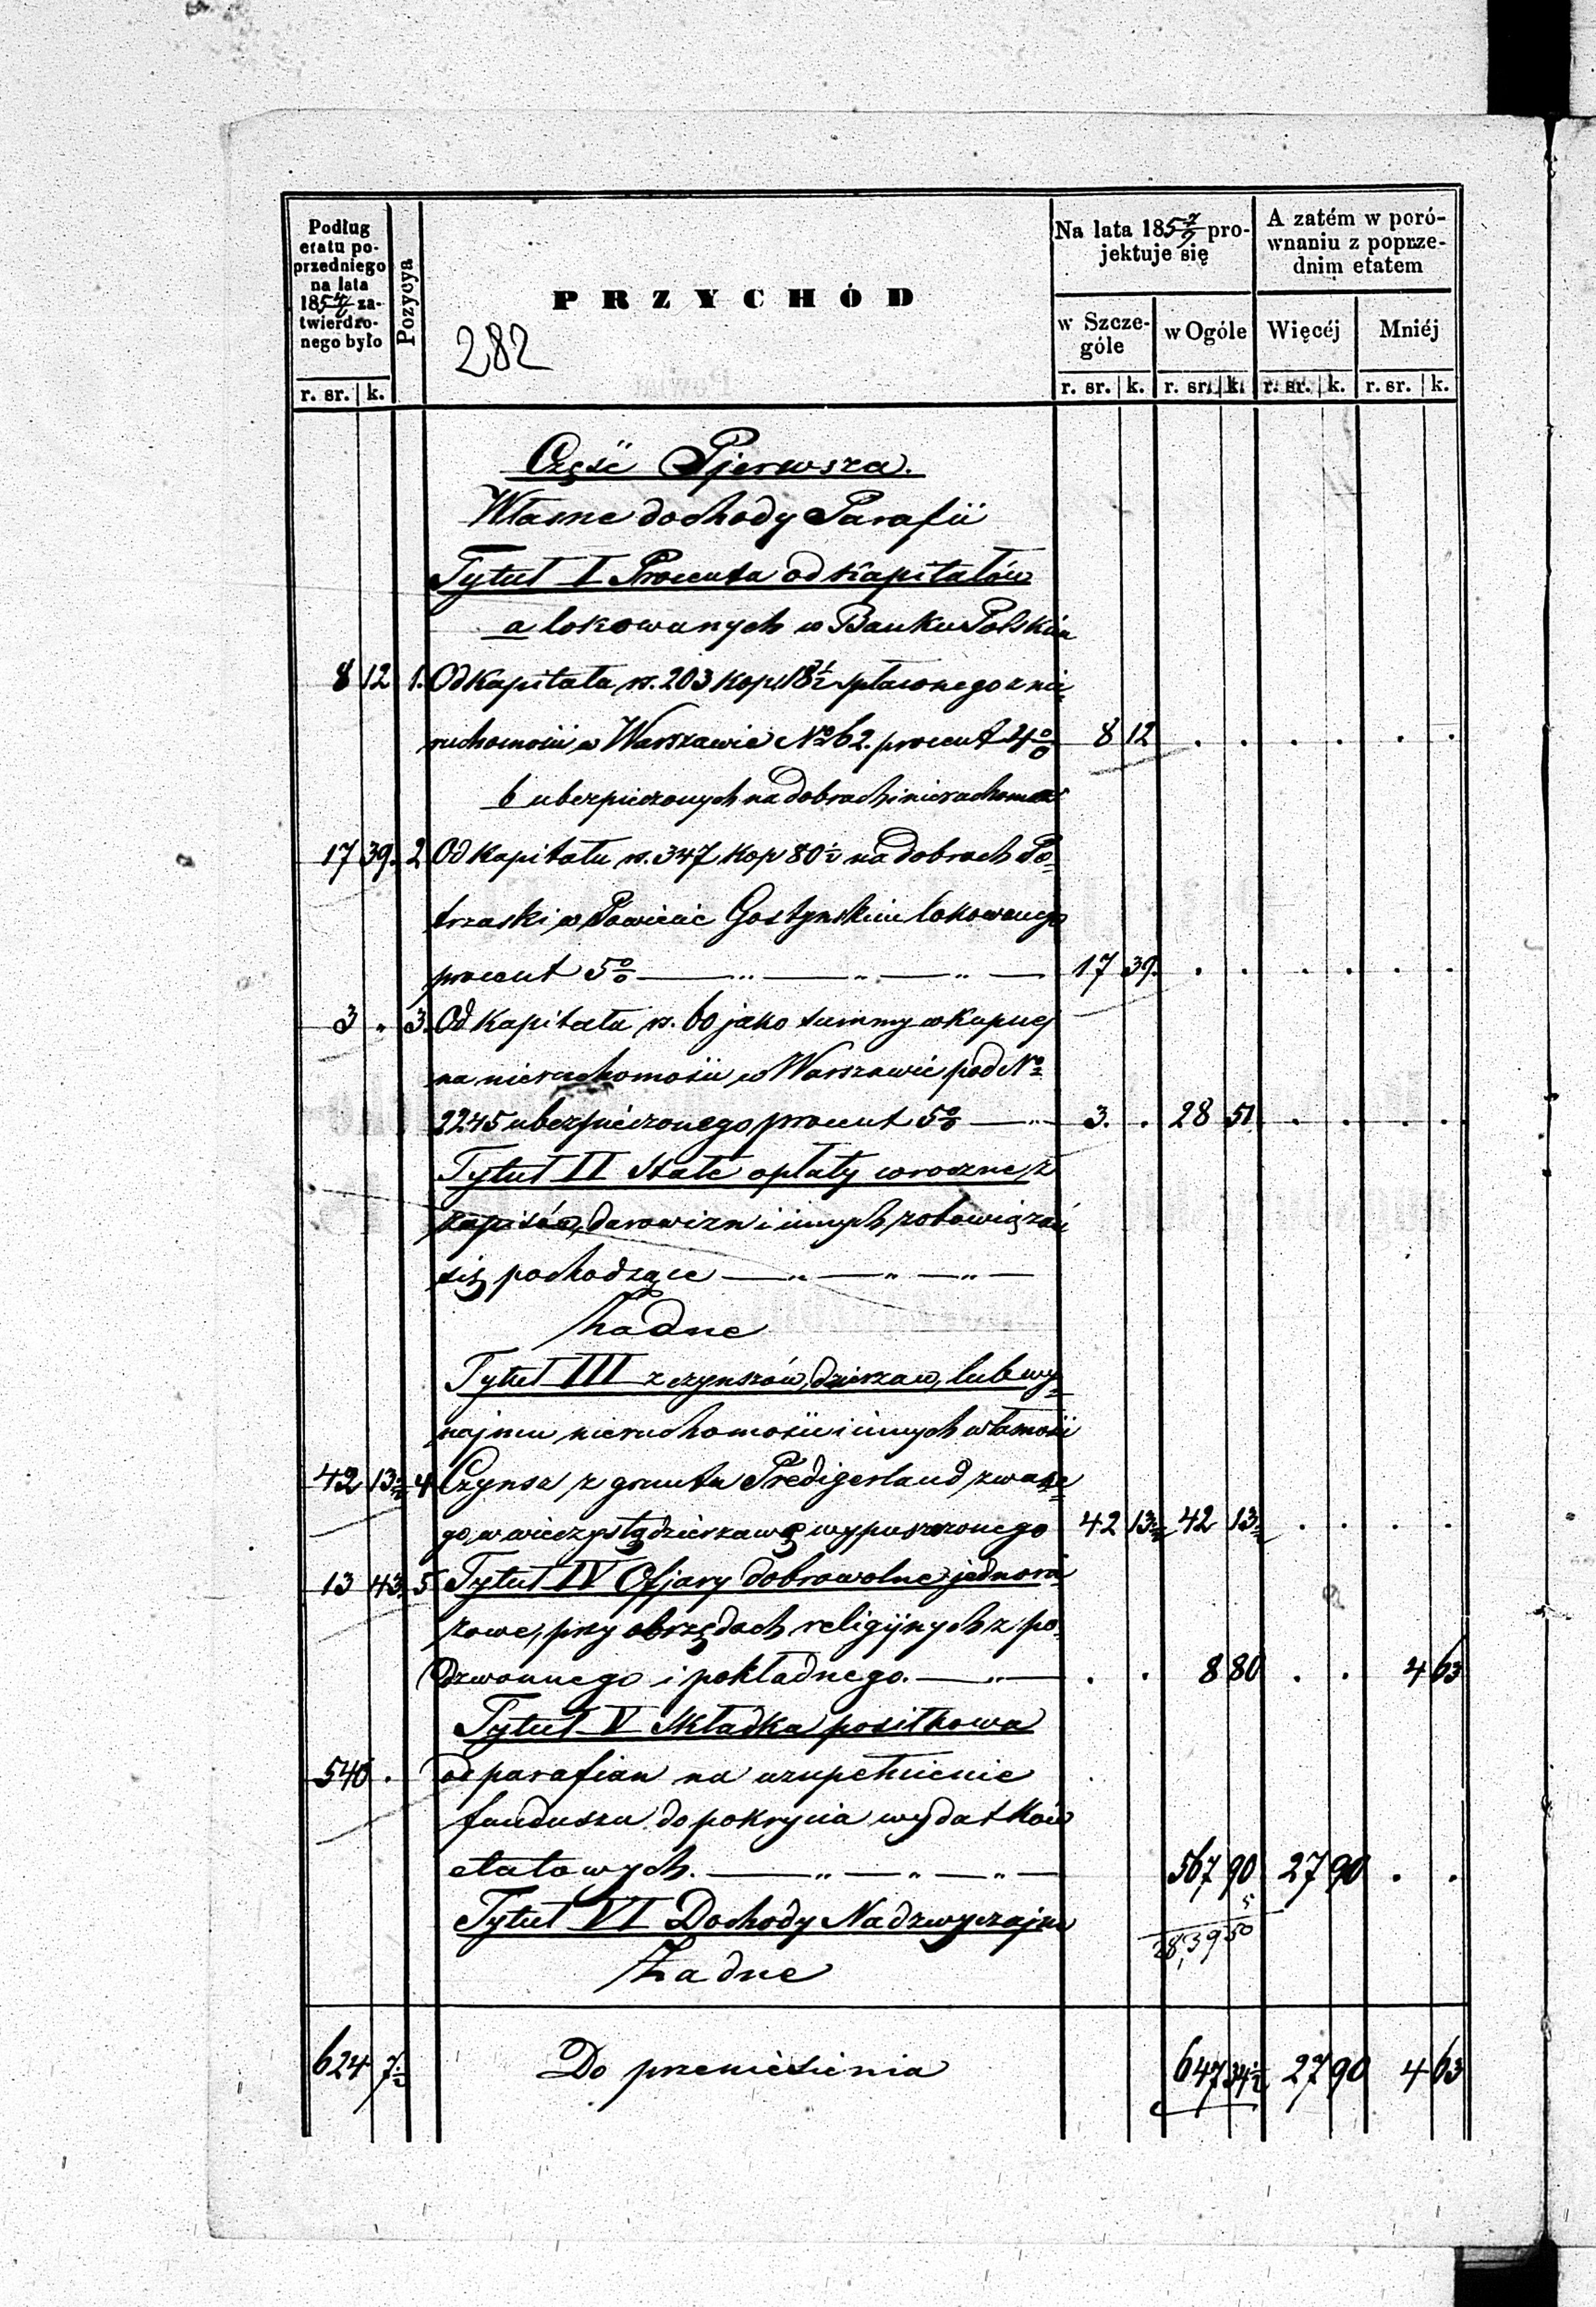 Podług
etatu po-
przedniego
na lata
185 4/6 za-
twierdzo-
nego było
r. sr. k.
Pozycya
PRZYCHÓD
282
Na lata 185 7/9 pro-
jektuje się
w Szcze-
góle
r. sr. k.
w Ogóle
r. sr. k.
A zatém w poró-
wnaniu z poprze-
dnim etatem
Więcéj
r. sr. k.
Mniéj
r. sr. k.
Część Pjerwsza.
Własne dochody Parafii
Tytuł I Procenta od Kapitałów
a lokowanych w Banku Polskim
8 12 1. Od Kapitału rs. 203 kop. 18½ spłaconego z nie-
ruchomości w Warszawie No 62. procent 4% 8 12 . . . . . .
b ubezpieczonych na dobrach i nieruchomoś
17 39. 2 Od Kapitału rs. 347 kop 80½ na dobrach Po-
trzaski w Powiecie Gostynskim lokowanego
procent 5% — „ — „ — „ — 17 39. . . . . . .
3 „ 3. Od Kapitału rs. 60 jako summy wkupnej
na nieruchomości w Warszawie pod No
2245 ubezpieczonego procent 5% — „ 3. . 28 51. . . . .
Tytuł II Stałe opłaty coroczne, z
zapisów, darowizn i innych zobowiązań
się pochodzące — „ — „ — „ —
Żadne
Tytuł III z czynszów, dzierzaw, lub wy-
najmu nieruchomości i innych własności
42 13½ 4 Czynsz z gruntu Predigerland zwane-
go w wieczystą dzierzawę wypuszczonego 42 13½ 42 13½ . . . .
13 43. 5 Tytuł IV Ofjary dobrowolne jednora-
zowe, przy obrzędach religijnych z po-
dzwonnego i pokładnego. — „ — . . 8 80 . . 4 63
Tytuł V Składka positkowa
540 . od parafian na uzupełnienie
funduszu do pokrycia wydatków
etatowych. — „ — „ — „ — 567 90 27 90 . .
Tytuł VI Dochody Nadzwyczajne
Żadne
624 7½ Do przeniesienia 647 34½ 27 90 4 63